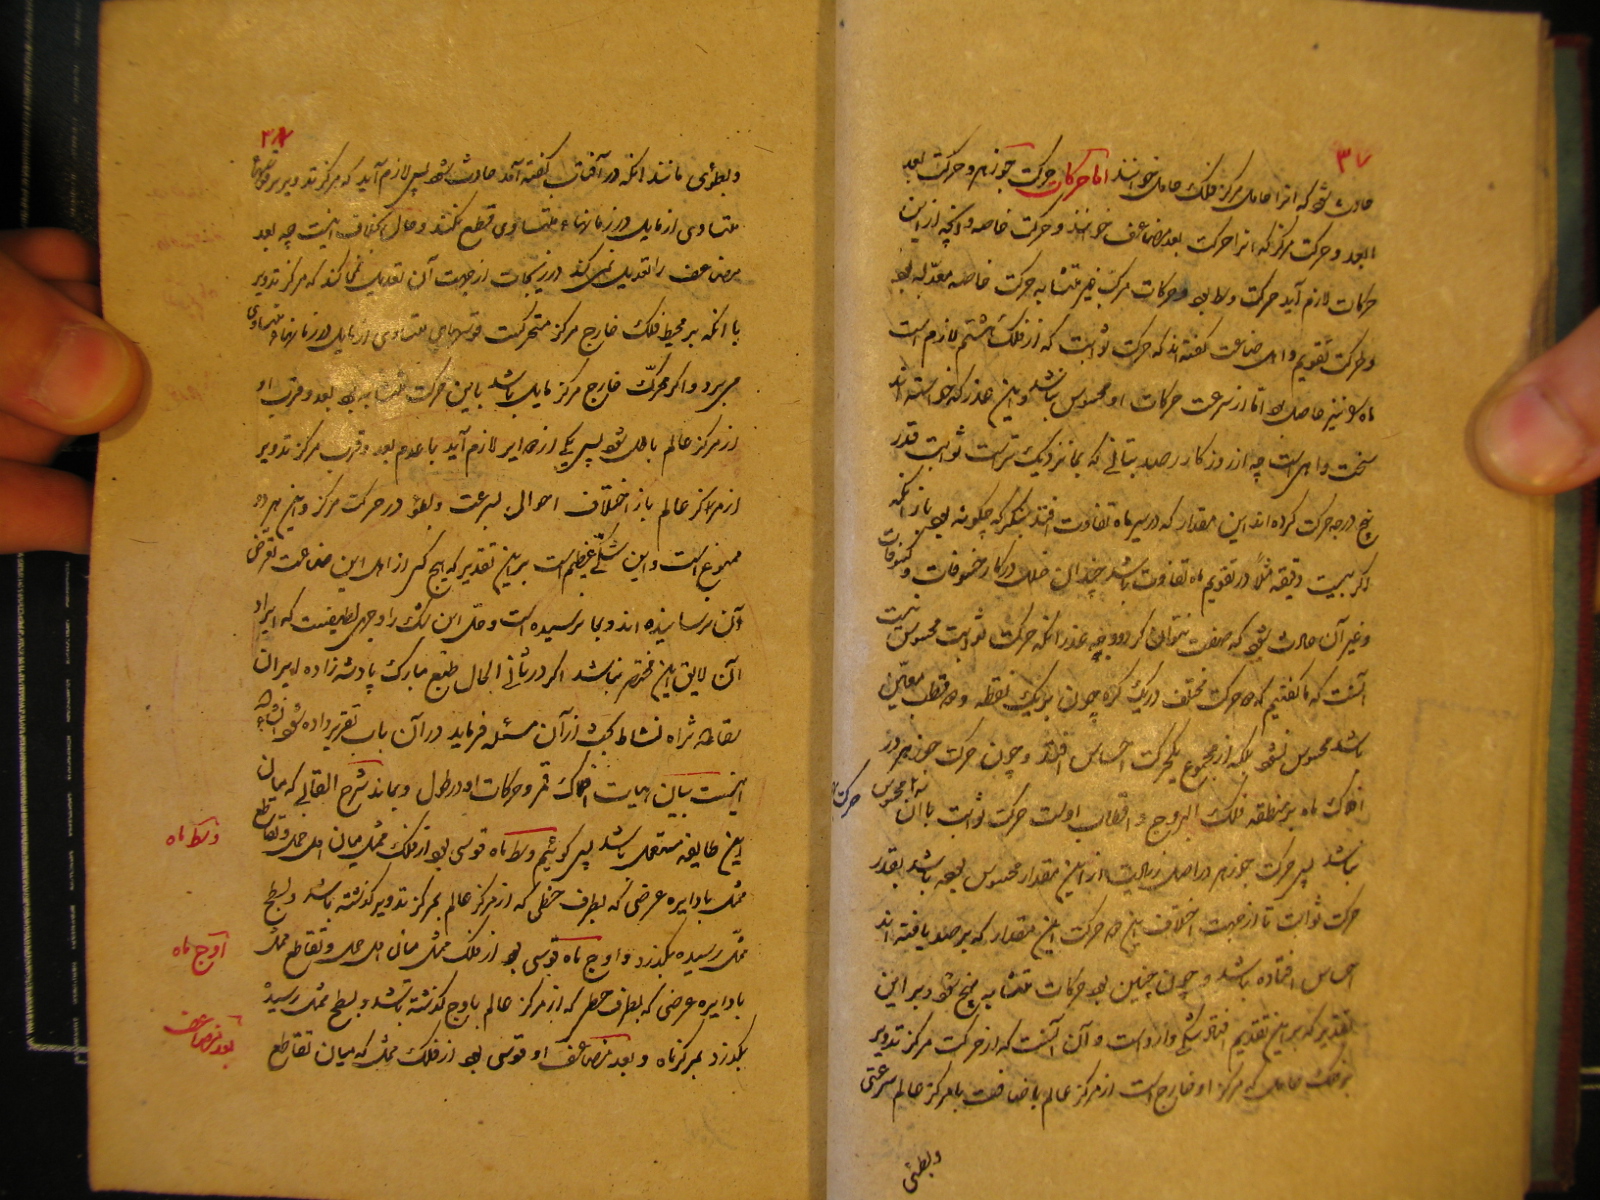 ۳۷
حادث شود که آنرا حامل مرکز فلک حامل خوانند اما حرکات حرکت جوزهر و حرکت بعد
البعد و حرکت مرکز که آنرا حرکت بعد مضاعف خوانند و حرکت خاصه و آنچه از این
حرکات لازم آید حرکت وسط بود و حرکات مرکب غیر متشابه حرکت خاصه معدله بود
و حرکت تقویم و اهل صناعت گفته‌اند که حرکت ثوابت که از فلک هشتم لازم است
ماه را نیز حاصل بود اما از سرعت حرکات او محسوس نباشد و این عذر که خواسته اند
سخت واهی است چه از روزگار رصد بتانی که بما نزدیک تر است ثوابت قدر
پنج درجه حرکت کرده‌اند این مقدار که در سیر ماه تفاوت افتد بنگر که چگونه بود باز آنکه
اگر بیست دقیقه مثلا در تقویم ماه تفاوت باشد چندان خلل در کار خسوفات و کسوفات
و غیر آن حادث شود که صفت نتوان کرد و وجه عذر آنکه حرکت ثوابت محسوس نیست
آنست که ما گفتیم که دو حرکت مختلف در یک کره چون بر یک نقطه و دو قطب معین
باشد محسوس نشود بلکه از مجموع یک حرکت احساس افتد و چون حرکت جوزهر در
افلاک ماه بر منطقه فلک البروج و اقطاب اوست حرکت ثوابت با آن محسوس
نباشد پس حرکت جوزهر در اصل زیادت از این مقدار محسوس بوده باشد بقدر
حرکت ثوابت تا از جهت اختلاف این دو حرکت این مقدار که برصد یافته اند
احساس افتاده باشد و چون چنین بود حرکات متشابه پنج شود و بر این
تقدیر که بر این تقدیم افتاد شکی وارد است و آن آنست که از حرکت مرکز تدویر
بر فلک حامل که مرکز او خارج است از مرکز عالم باضافت با مرکز عالم سرعتی
و بطئی
و بطوئی مانند آنکه در آفتاب گفته آمد حادث شود پس لازم آید که مرکز تدویر قوسهای
متساوی از مایل در زمانهاء متساوی قطع نکند و حال بخلاف اینست چه بعد
مضاعف را تعدیل نمی کند در زیجات از جهت آن تعدیل نمی کنند که مرکز تدویر
با آنکه بر محیط فلک خارج مرکز متحرکست قوسهای متساوی از مایل در زمانهاء متساوی
می برد و اگر محرک خارج مرکز مایل باشد با این حرکت متشابه بود بعد و قرب او
از مرکز عالم باطل شود پس یکی از دو امر لازم آید یا عدم بعد و قرب مرکز تدویر
از مرکز عالم یا از اختلاف احوال بسرعت و بطوء در حرکت مرکز و این هر دو
ممنوع است و این شکی عظیم است بر این تقدیر که هیچ کس از اهل این صناعت تعرض
آن نرسانیده اند و بما نرسیده است و حل این شک را وجهی لطیفست که ایراد
آن لایق این مختصر نباشد اگر در ثانی الحال طبع مبارک پادشه‌زاده ایران
نشاط بحث از آن مسئله فرماید در آن باب تقریر داده شود انشاءالله
اینست بیان هیات افلاک قمر و حرکات او در طول و بماند شرح القابی که میان
این طایفه مستعمل باشد پس گوئیم وسط ماه قوسی بود از فلک ممثل میان اول حمل و تقاطع
ممثل با دایره عرضی که بطرف خطی که از مرکز عالم بمرکز تدویر گذشته باشد و بسطح
ممثل رسیده بگذرد و اوج ماه قوسی بود از فلک ممثل میان اول حمل و تقاطع ممثل
با دایره عرضی که بطرف خطی که از مرکز عالم باوج گذشته باشد و بسطح ممثل رسیده
بگذرد بمرکز ماه و بعد مضاعف او قوسی بود از فلک ممثل که میان تقاطع
وسط ماه
اوج ماه
بعد مضاعف